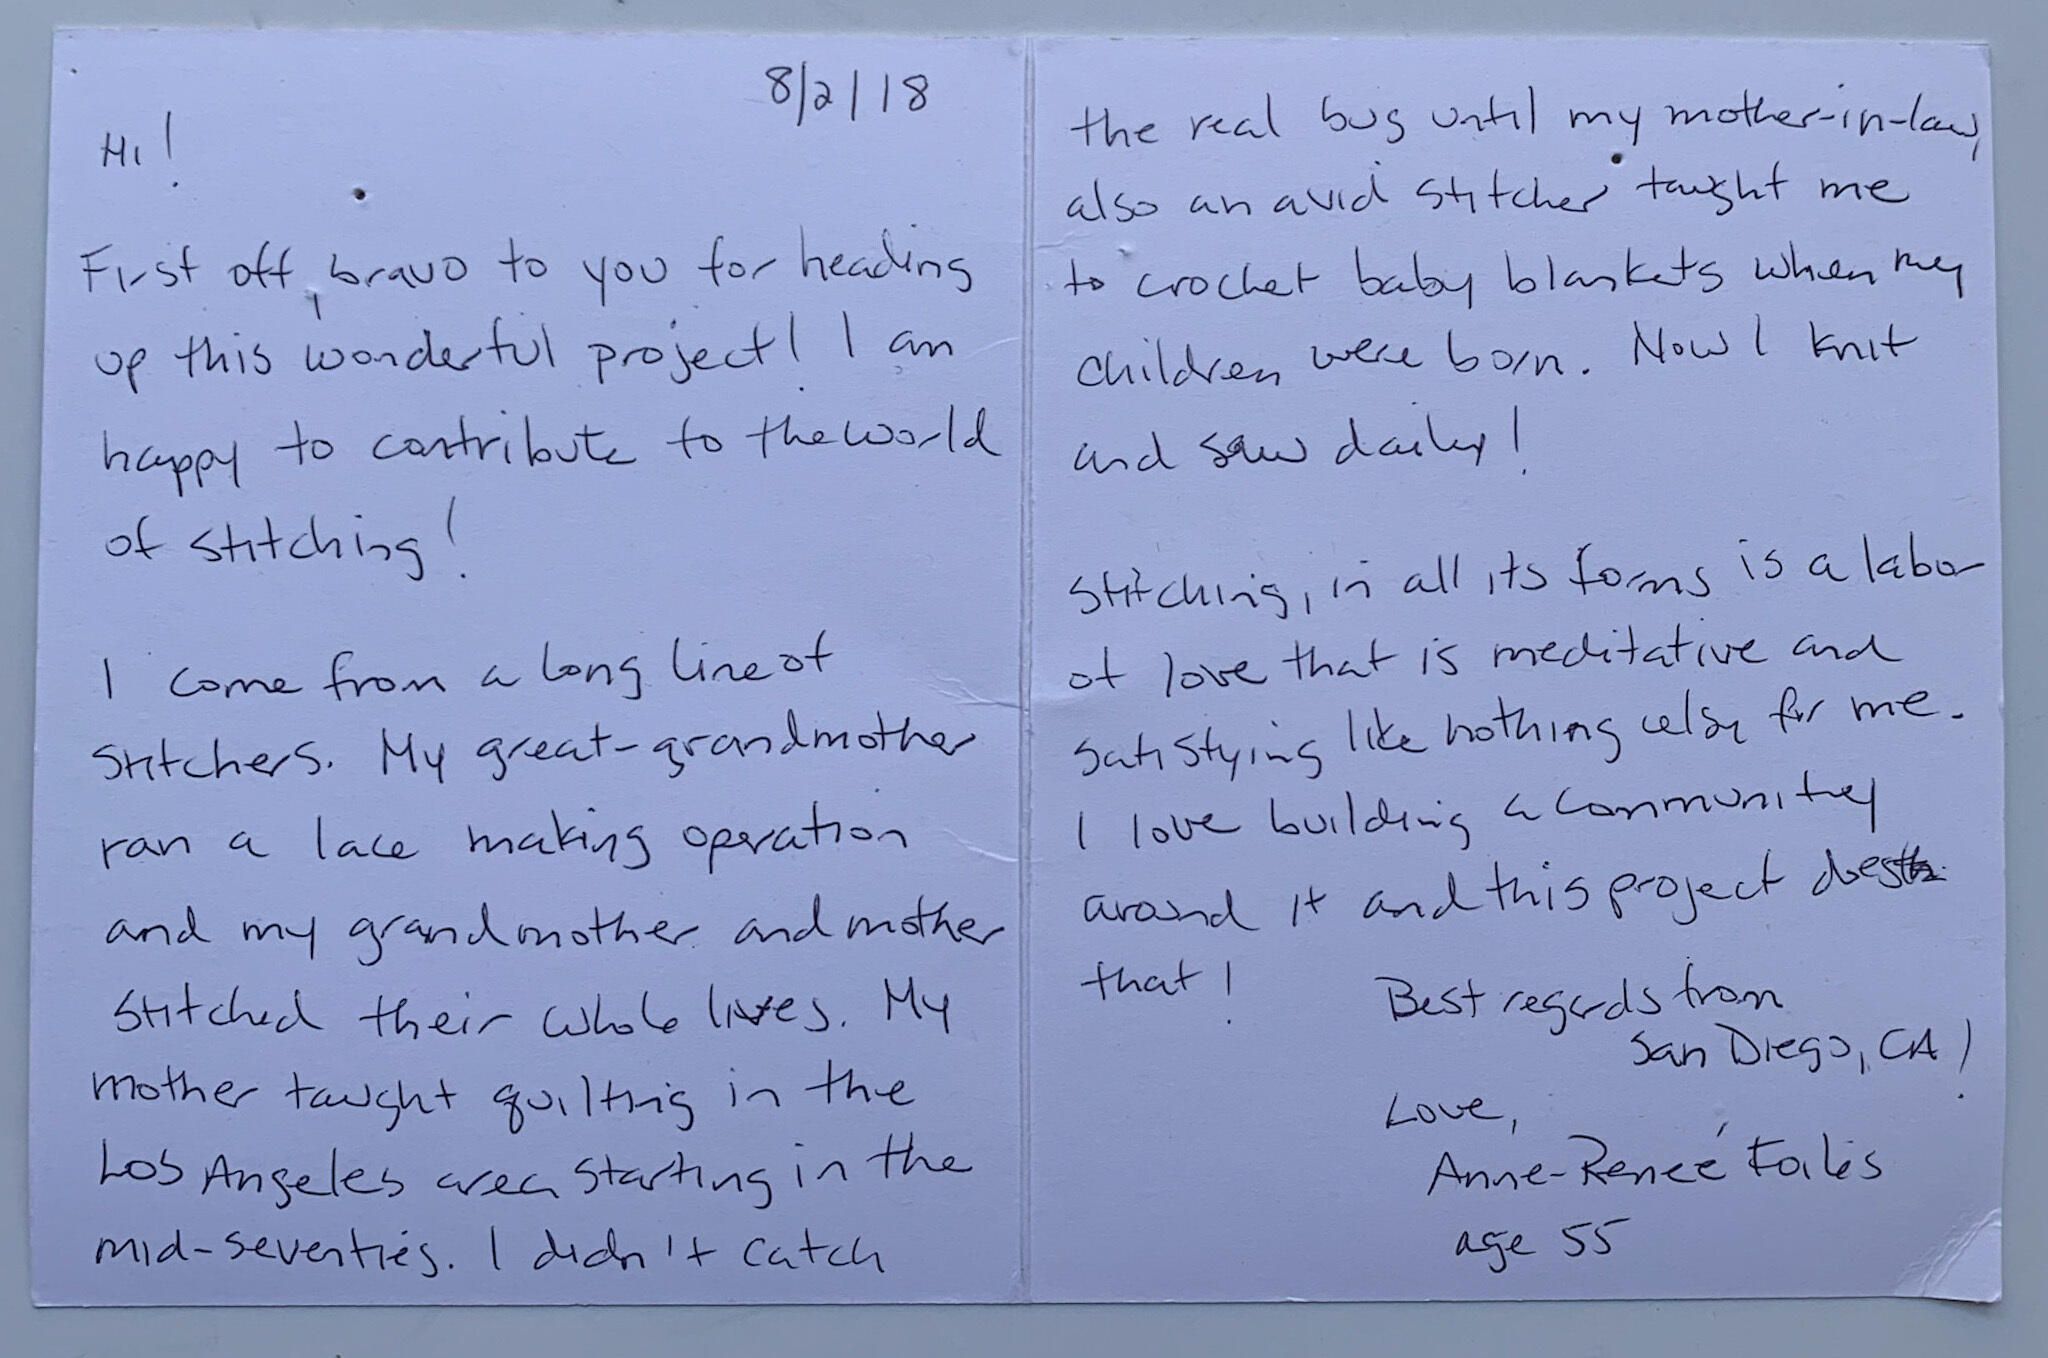 8/2/18
Hi!
First off, bravo to you for heading
up this wonderful project! I am
happy to contribute to the world
of stitching!
I come from a long line of
stitchers. My great-grandmother
ran a lace making operation
and my grandmother and mother
stitched their whole lives. My
mother taught quilting in the
Los Angeles area starting in the
mid-seventies. I didn't catch
the real bug until my mother-in-law,
also an avid stitcher taught me
to crochet baby blankets when my
children were born. Now I knit
and sew daily!
Stitching, in all its forms is a labor
of love that is meditative and
satisfying like nothing else for me.
I love building a community
around it and this project does
that!
Best regards from
San Diego, CA!
Love,
Anne-Reneé
age 55